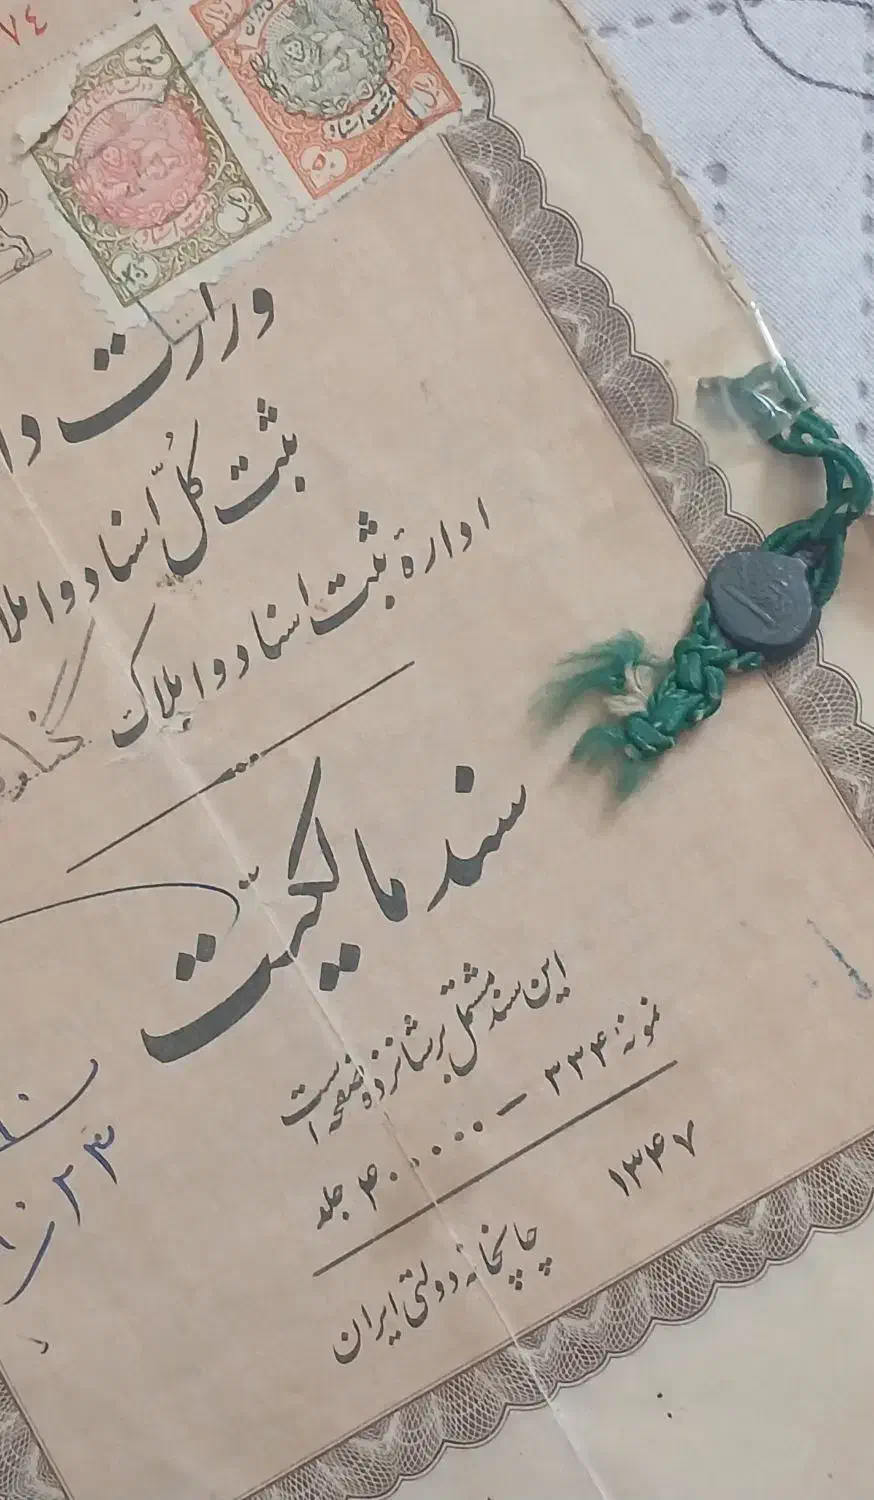 ۷۴
ثبت اسناد
۵
ریال
وزارت دا
ثبت کلّ اسناد و املا
ادارهٔ ثبت اسناد و املاک
سند مالکیّت
این سند مشتمل بر شانزده صفحه است
نمونهٔ ۳۳۴ – ۴۰۰۰۰۰ جلد
۱۳۴۷
چاپخانه دولتی ایران